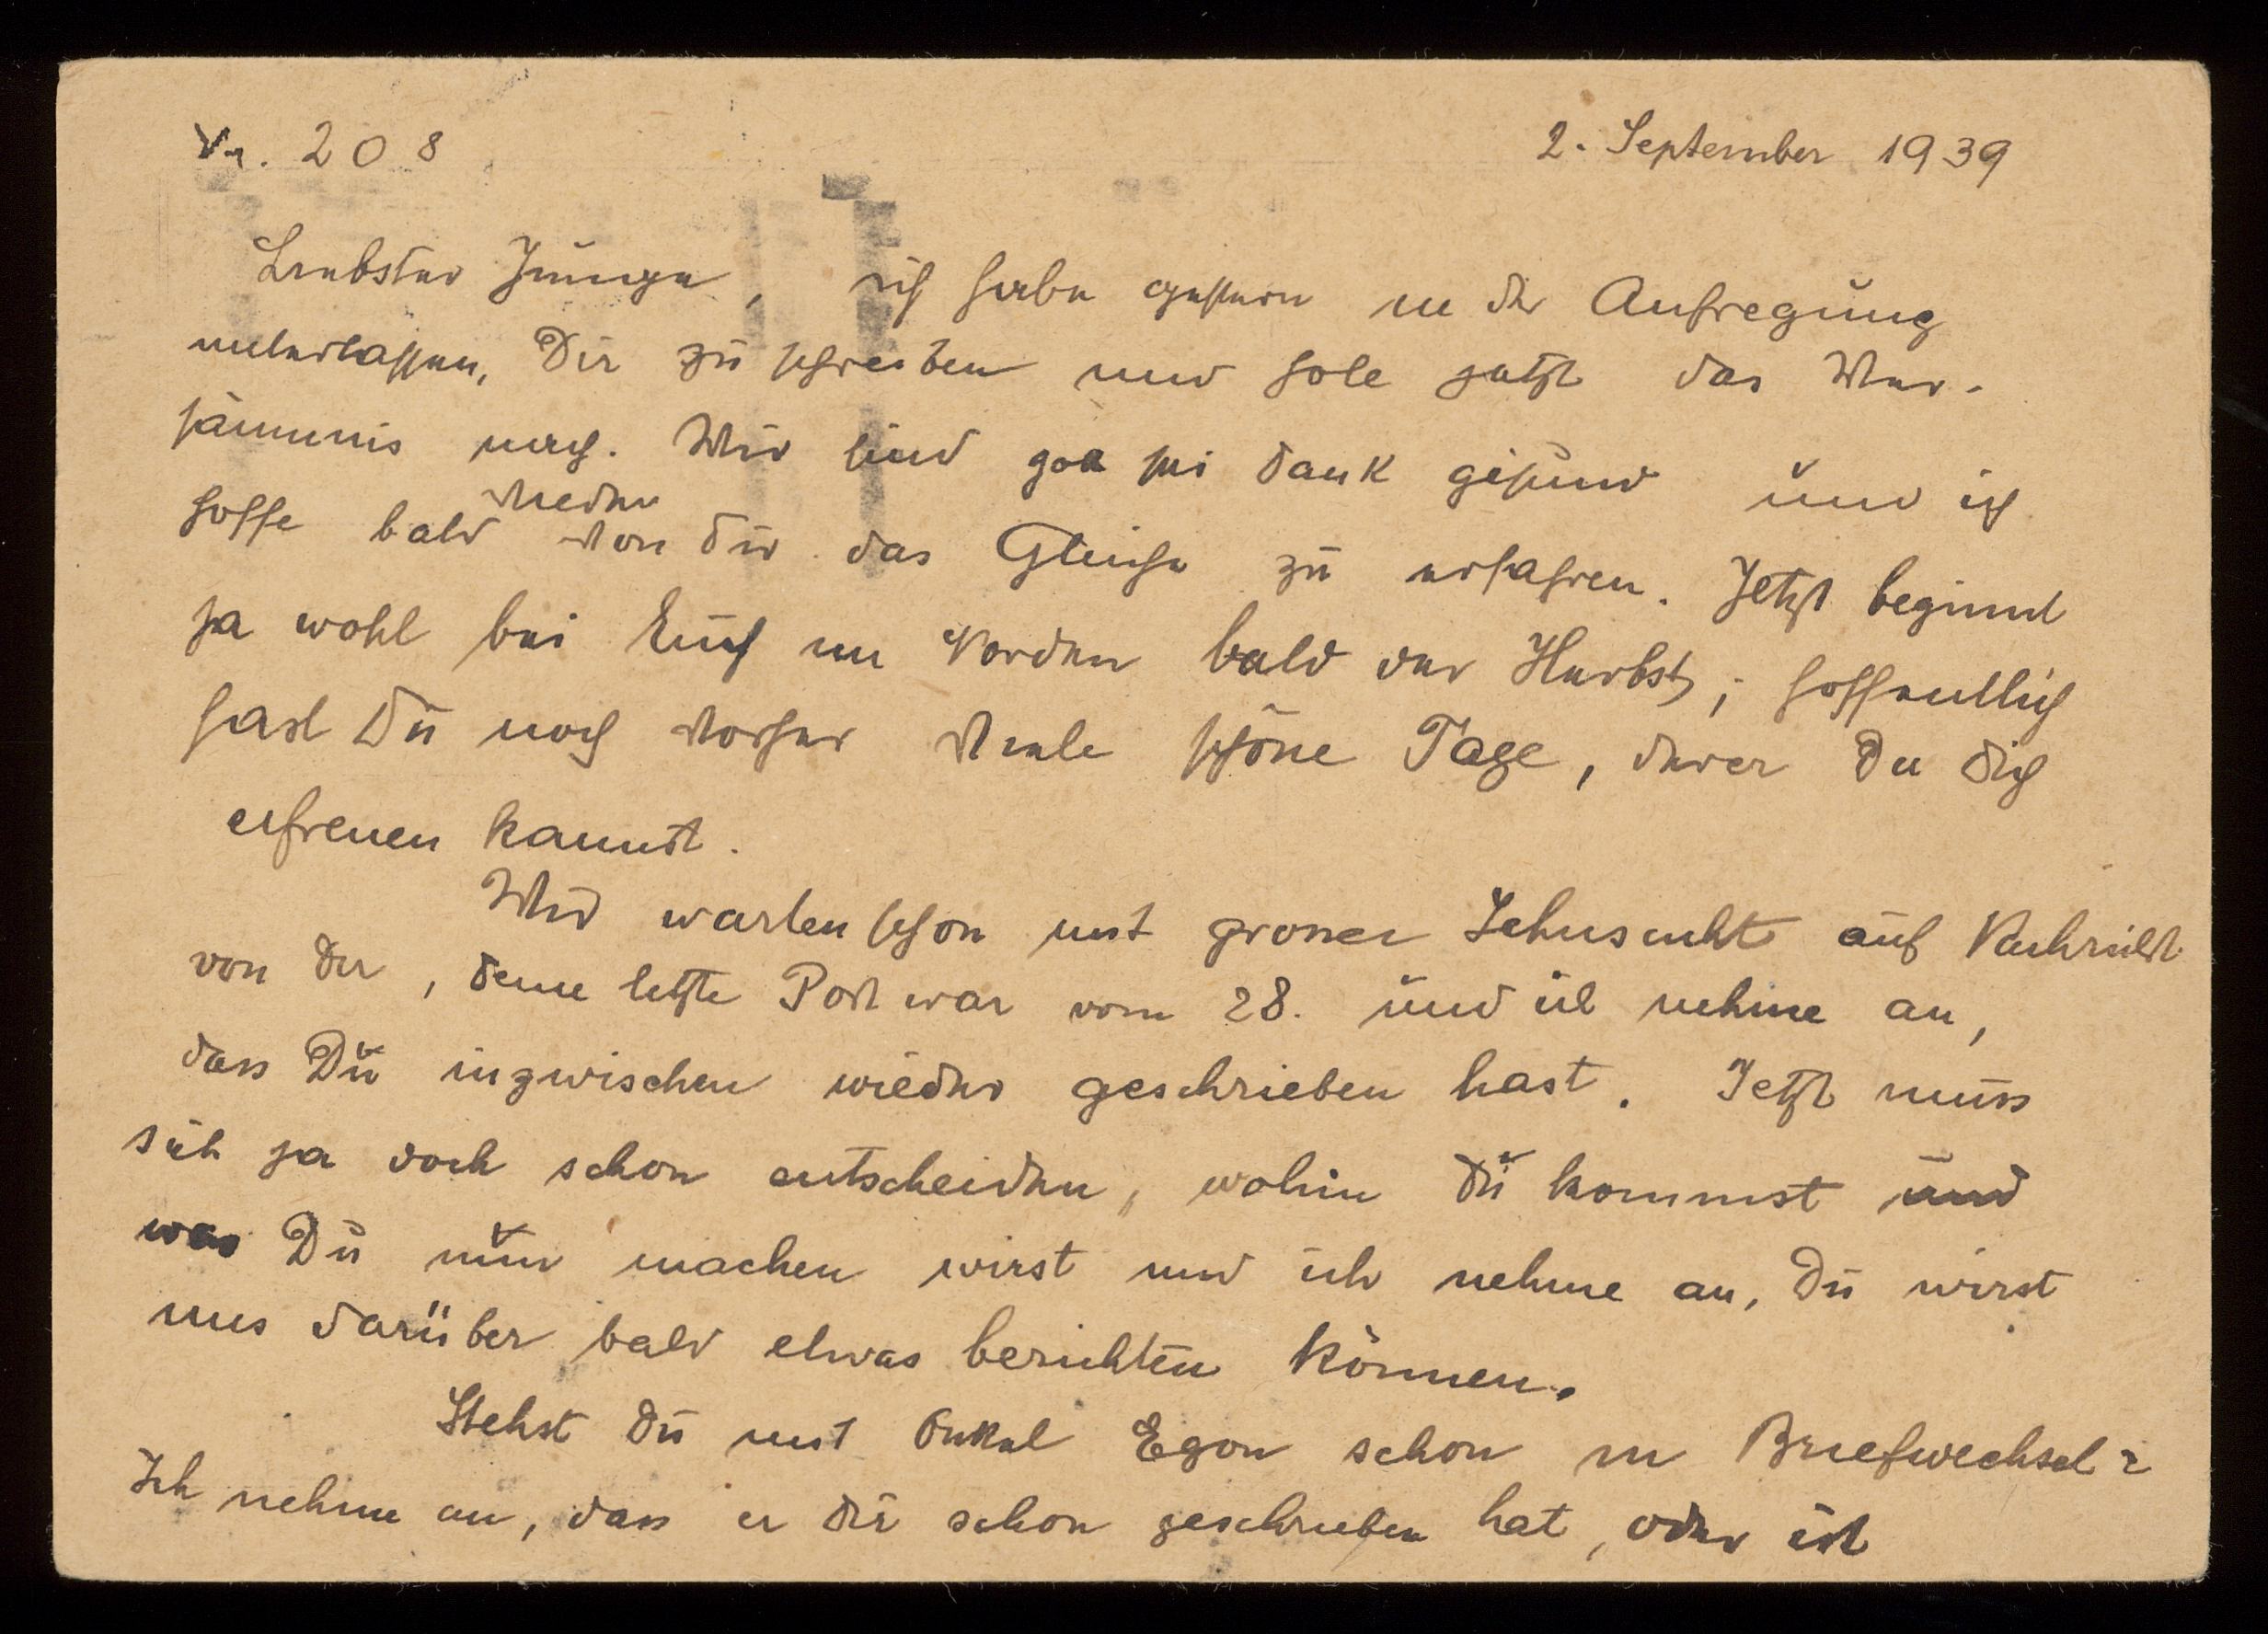 Nr. 208
2. September 1939
Liebster Junge, ich habe gestern in der Aufregung
unterlassen, Dir zu schreiben und hole jetzt das Ver-
säumnis nach. Wir sind gott sei dank gesund und ich
hoffe bald wieder von dir das Gleiche zu erfahren. Jetzt beginnt
ja wohl bei Euch im Norden bald der Herbst; hoffentlich
hast Du noch vorher viele schöne Tage, derer Du dich
erfreuen kannst.
Wir warten schon mit grosser Sehnsucht auf Nachricht
von dir, deine letzte Post war vom 28. und ich nehme an,
dass Du inzwischen wieder geschrieben hast. Jetzt muss
sich ja doch schon entscheiden, wohin du kommst und
was Du nun machen wirst und ich nehme an, du wirst
uns darüber bald etwas berichten können.
Stehst du mit Onkel Egon schon in Briefwechsel?
Ich nehme an, dass er dir schon geschrieben hat, oder ist